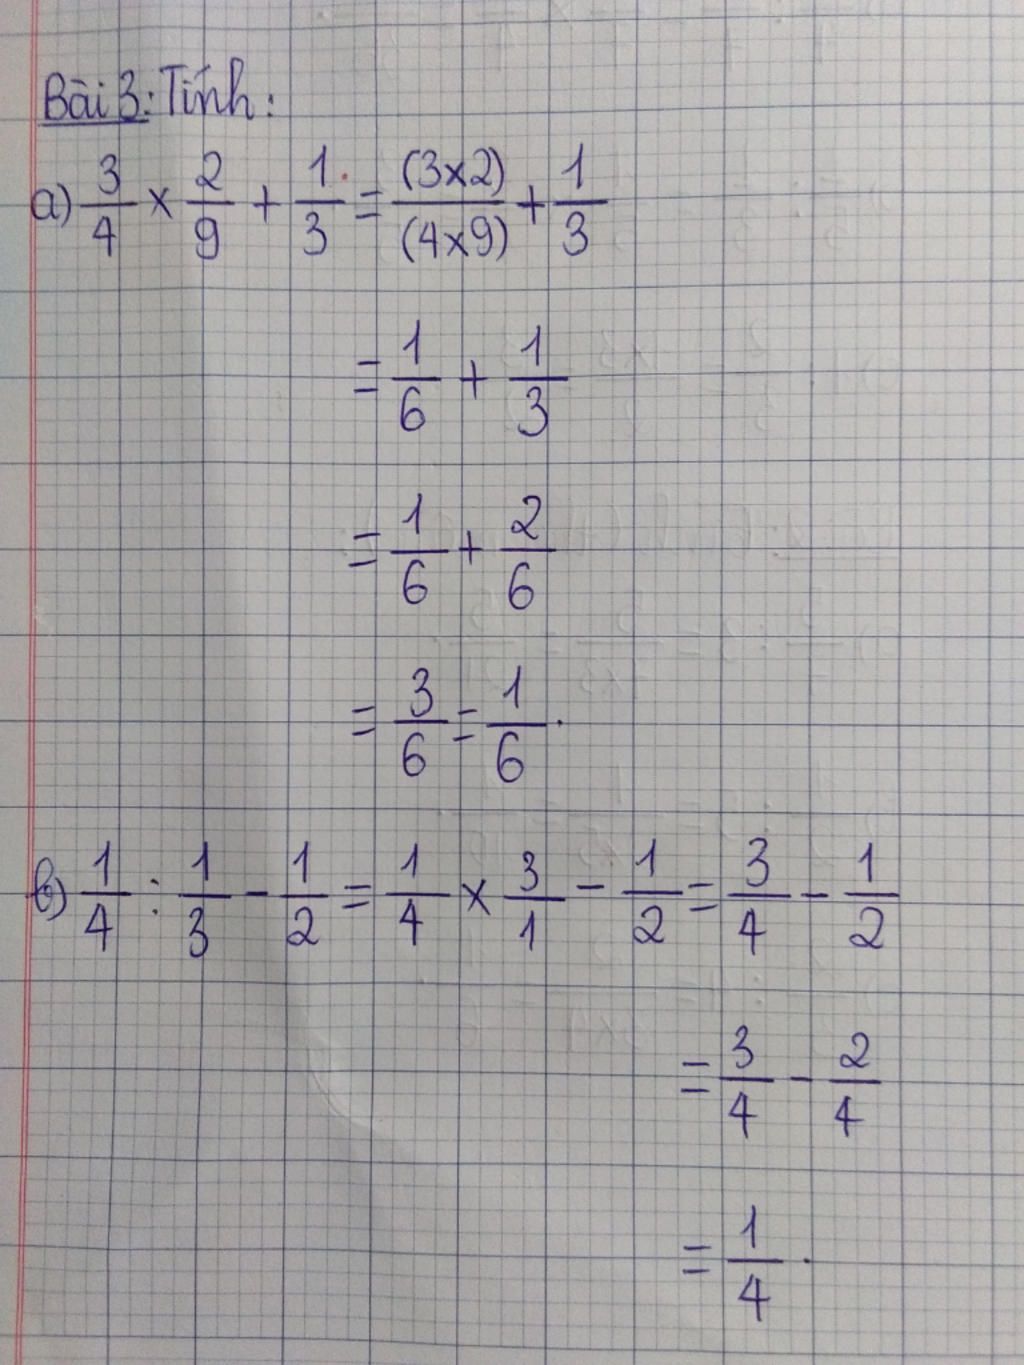 Bài 3: Tính:
a) 3/4 x 2/9 + 1/3 = (3x2)/(4x9) + 1/3
= 1/6 + 1/3
= 1/6 + 2/6
= 3/6 = 1/6.
b) 1/4 : 1/3 - 1/2 = 1/4 x 3/1 - 1/2 = 3/4 - 1/2
= 3/4 - 2/4
= 1/4.